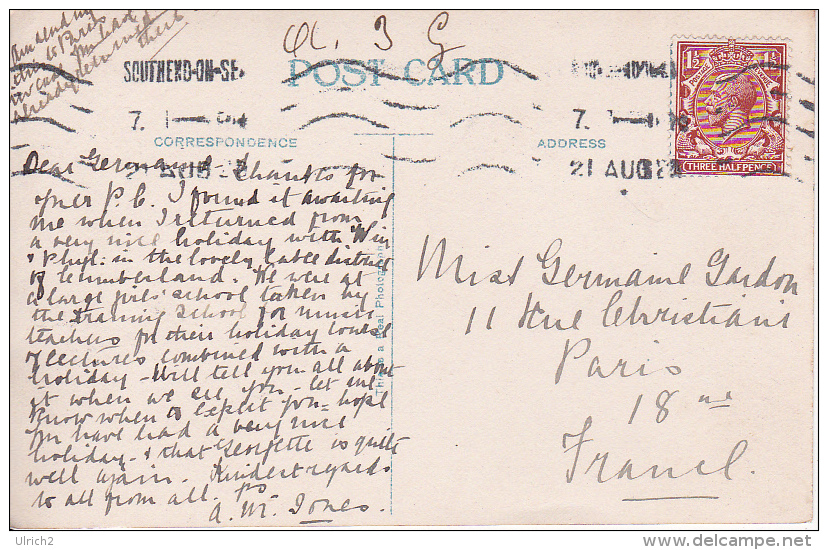 to Paris
already returned
there
SOUTHEND-ON-SE
POST CARD
7.
7.
CORRESPONDENCE
ADDRESS
21 AUG
21 AUG 2
1½ 1½
THREE HALFPENCE
Dear Germaine Thanks for
your P.C. I found it awaiting
me when I returned from
a very nice holiday with Win
& Phyl: in the lovely Lake district
of Cumberland. We were at
a large girls' school taken by
the training school for music
teachers for their holiday course
of lectures combined with a
holiday - Will tell you all about
it when we see you - let me
know when to expect you - hope
you have had a very nice
holiday - & that Georgette is quite
well again. Kindest regards
to all from all.
A. M. Jones.
This is a Real Photograph
Miss Germaine Gardon
11 Rue Christiani
Paris
18 me
France.
Ulrich2
delcampe.net